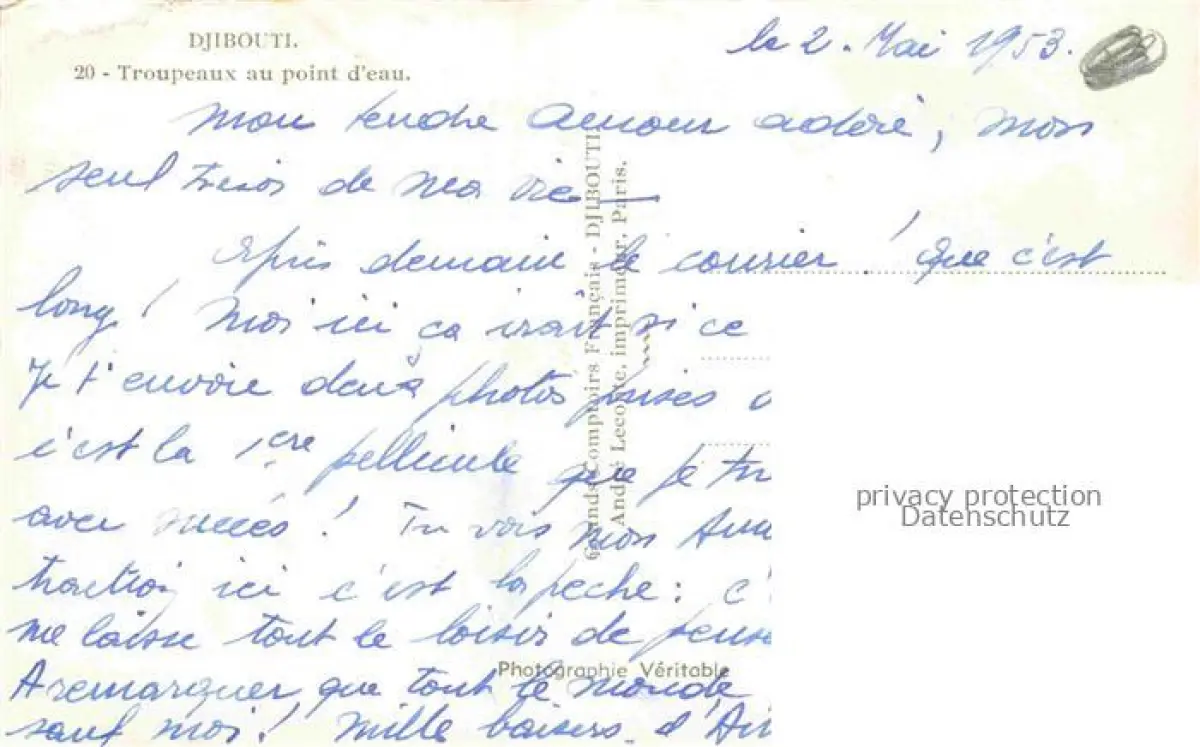 DJIBOUTI.
20 - Troupeaux au point d'eau.
le 2. Mai 1953.
Mon tendre amour adoré, mon
seul trésor de ma vie —
Après demain le courrier ! Que c'est
long ! Moi ici ça irait si ce
Je t'envoie deux photos prises
c'est la 1ère pellicule que je
avec succès ! Tu vois mon
ici c'est la peche : c'
me laisse tout le loisir de pense
A remarquer que tout le monde
sauf moi ! Mille baisers d'
Grands Comptoirs Français - DJIBOUTI
André Leconte, imprimeur, Paris.
Photographie Véritable
privacy protection
Datenschutz